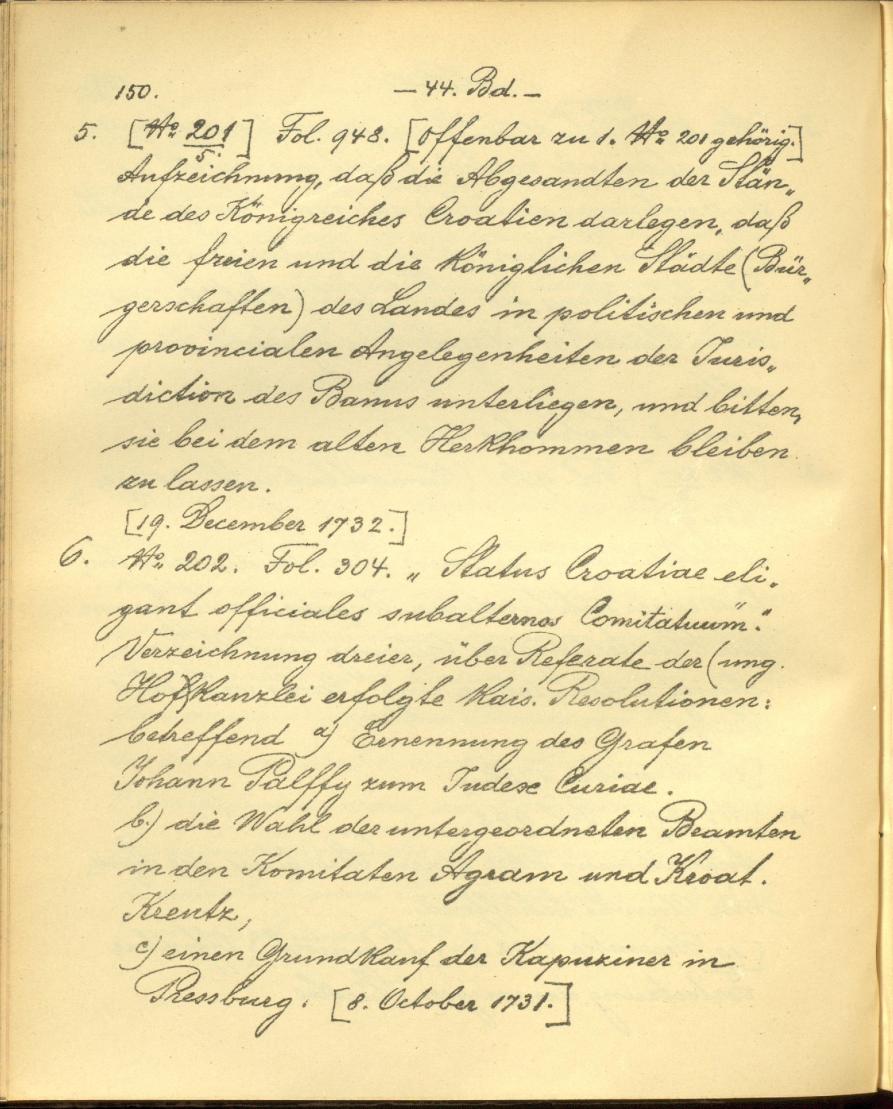 150. — 44. Bd. —
5. [No 201/5.] Fol. 948. [Offenbar zu 1. No 201 gehörig.]
Aufzeichnung, daß die Abgesandten der Stän„
de des Königreiches Croatien darlegen, daß
die freien und die Königlichen Städte (Bür„
gerschaften) des Landes in politischen und
provincialen Angelegenheiten der Juris„
diction des Banus unterliegen, und bitten,
sie bei dem alten Herkhommen bleiben
zu lassen.
[19. December 1732.]
6. No 202. Fol. 304. „Status Croatiae eli„
gant officiales subalternos Comitatuum."
Verzeichnung dreier, über Referate der (ung.
Hof)Kanzlei erfolgte Kais. Resolutionen:
betreffend a) Ernennung des Grafen
Johann Palffy zum Judex Curiae.
b.) die Wahl der untergeordneten Beamten
in den Komitaten Agram und Kroat.
Kreutz,
c) einen Grundkauf der Kapuziner in
Pressburg. [8. October 1731.]